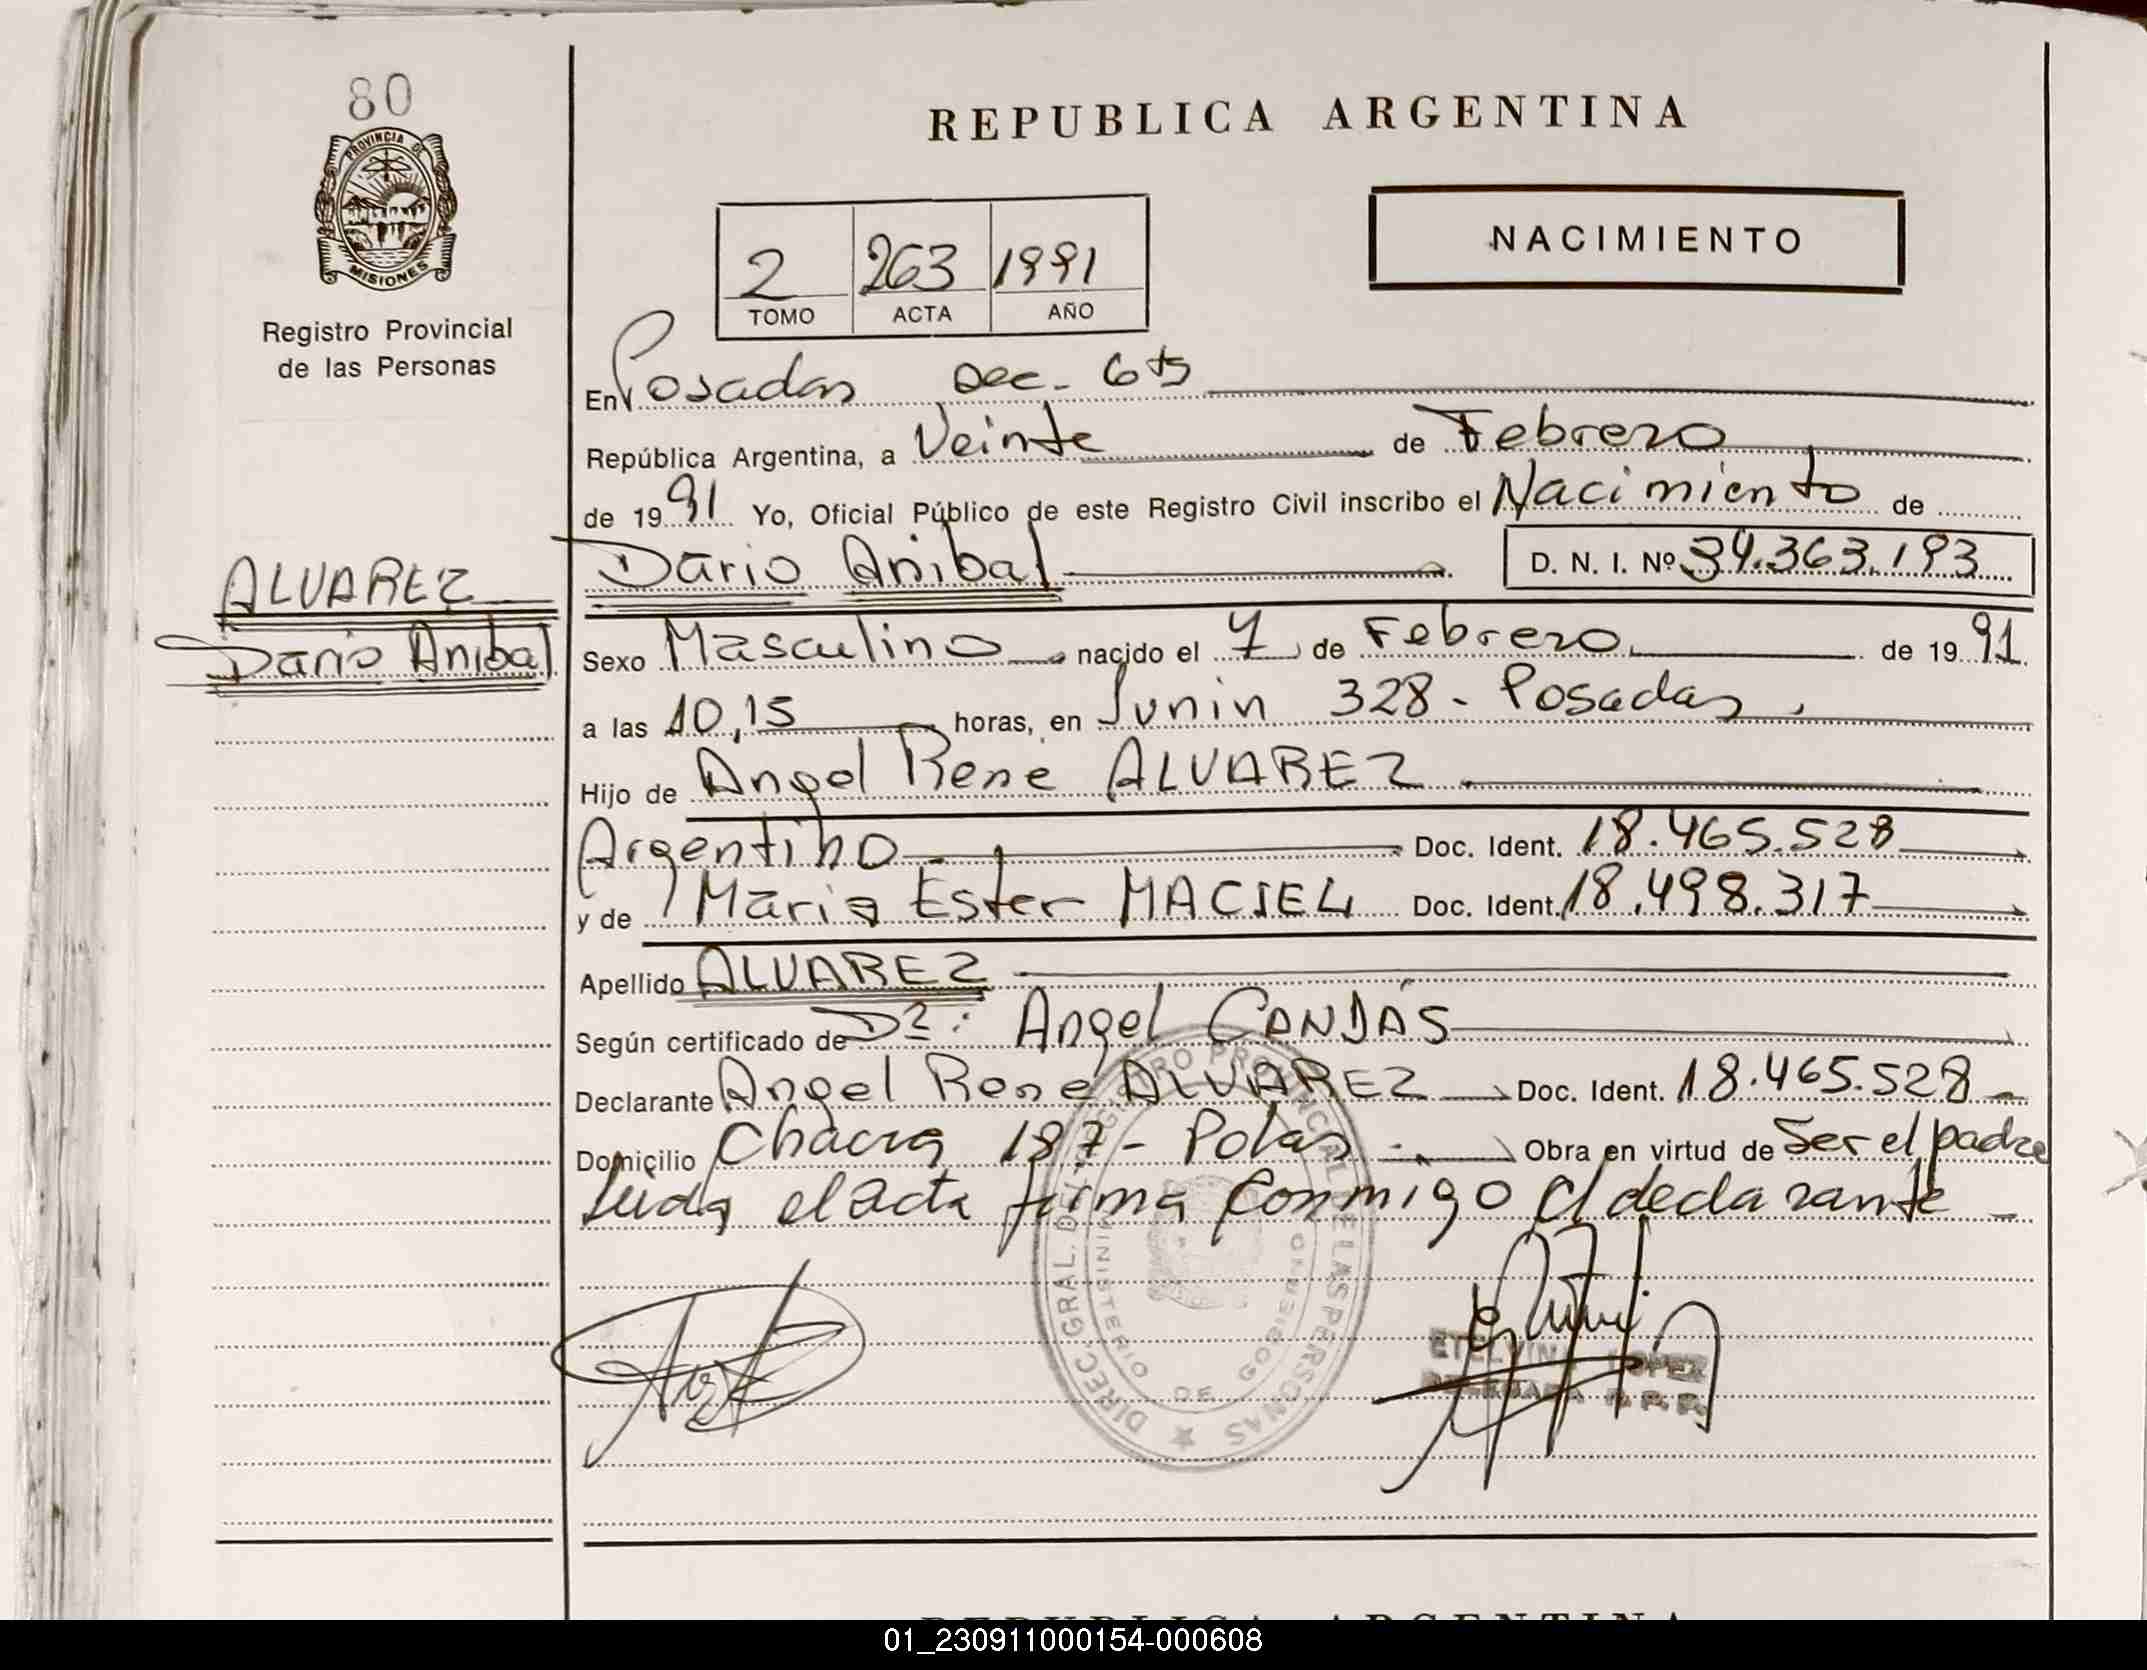 80
PROVINCIA DE
MISIONES
Registro Provincial
de las Personas
REPUBLICA ARGENTINA
2 263 1991
TOMO ACTA AÑO
NACIMIENTO
En Posadas Sec. 6ta
República Argentina, a Veinte de Febrero
de 1991 Yo, Oficial Público de este Registro Civil inscribo el Nacimiento de
Dario Anibal D. N. I. Nº 34.363.193
ALVAREZ
Dario Anibal
Sexo Masculino nacido el 7 de Febrero de 1991
a las 10,15 horas, en Junin 328 - Posadas.
Hijo de Angel Rene ALVAREZ
Argentino Doc. Ident. 18.465.528
y de Maria Ester MACIEL Doc. Ident. 18.498.317
Apellido ALVAREZ
Según certificado de Dr: Angel CANDÁS
Declarante Angel René ALVAREZ Doc. Ident. 18.465.528
Domicilio Chacra 187 - Pdas. Obra en virtud de Ser el padre
Leida el acta firma conmigo el declarante
DIREC. GRAL. DEL REGISTRO PROVINCIAL DE LAS PERSONAS
MINISTERIO DE GOBIERNO
ETELVINA LOPEZ
DELEGADA R. P. P.
REPUBLICA ARGENTINA
01_230911000154-000608